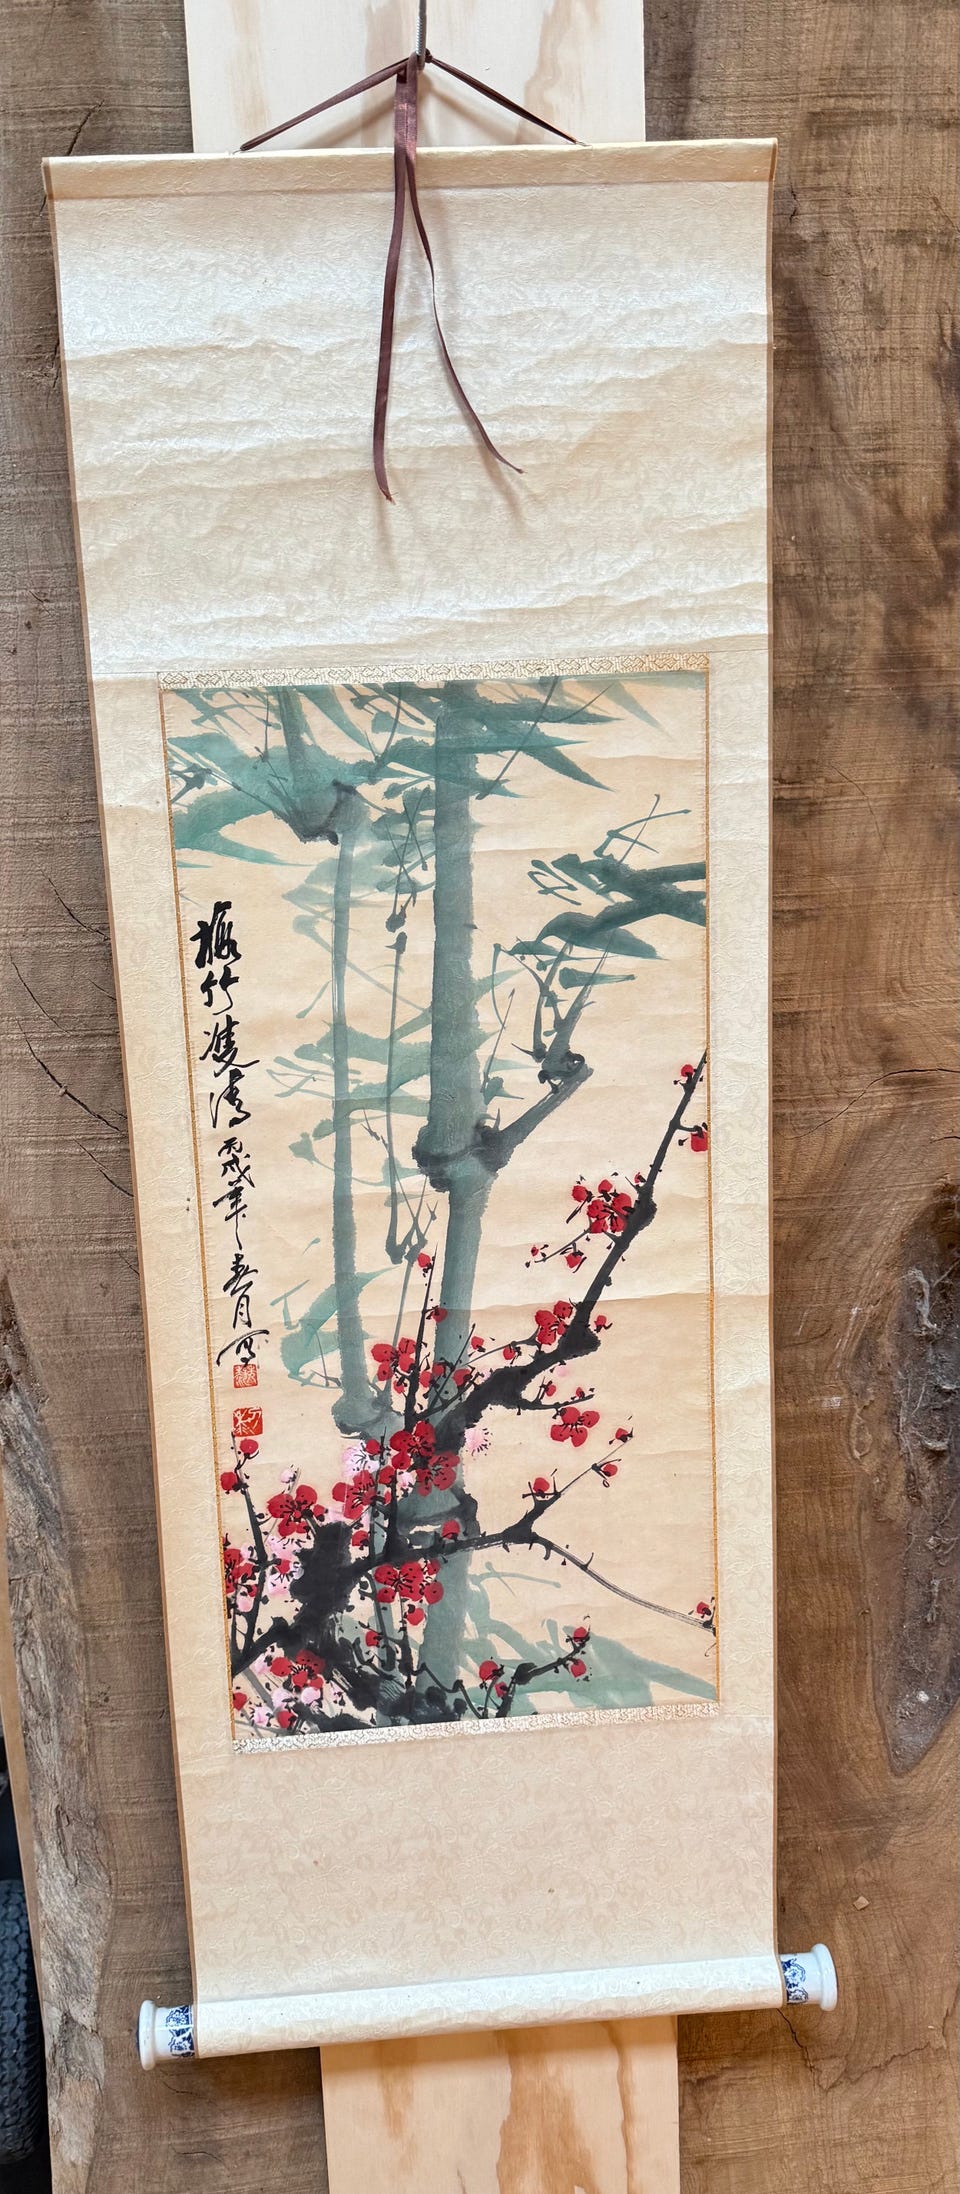 梅竹雙清丙戌年春月寫